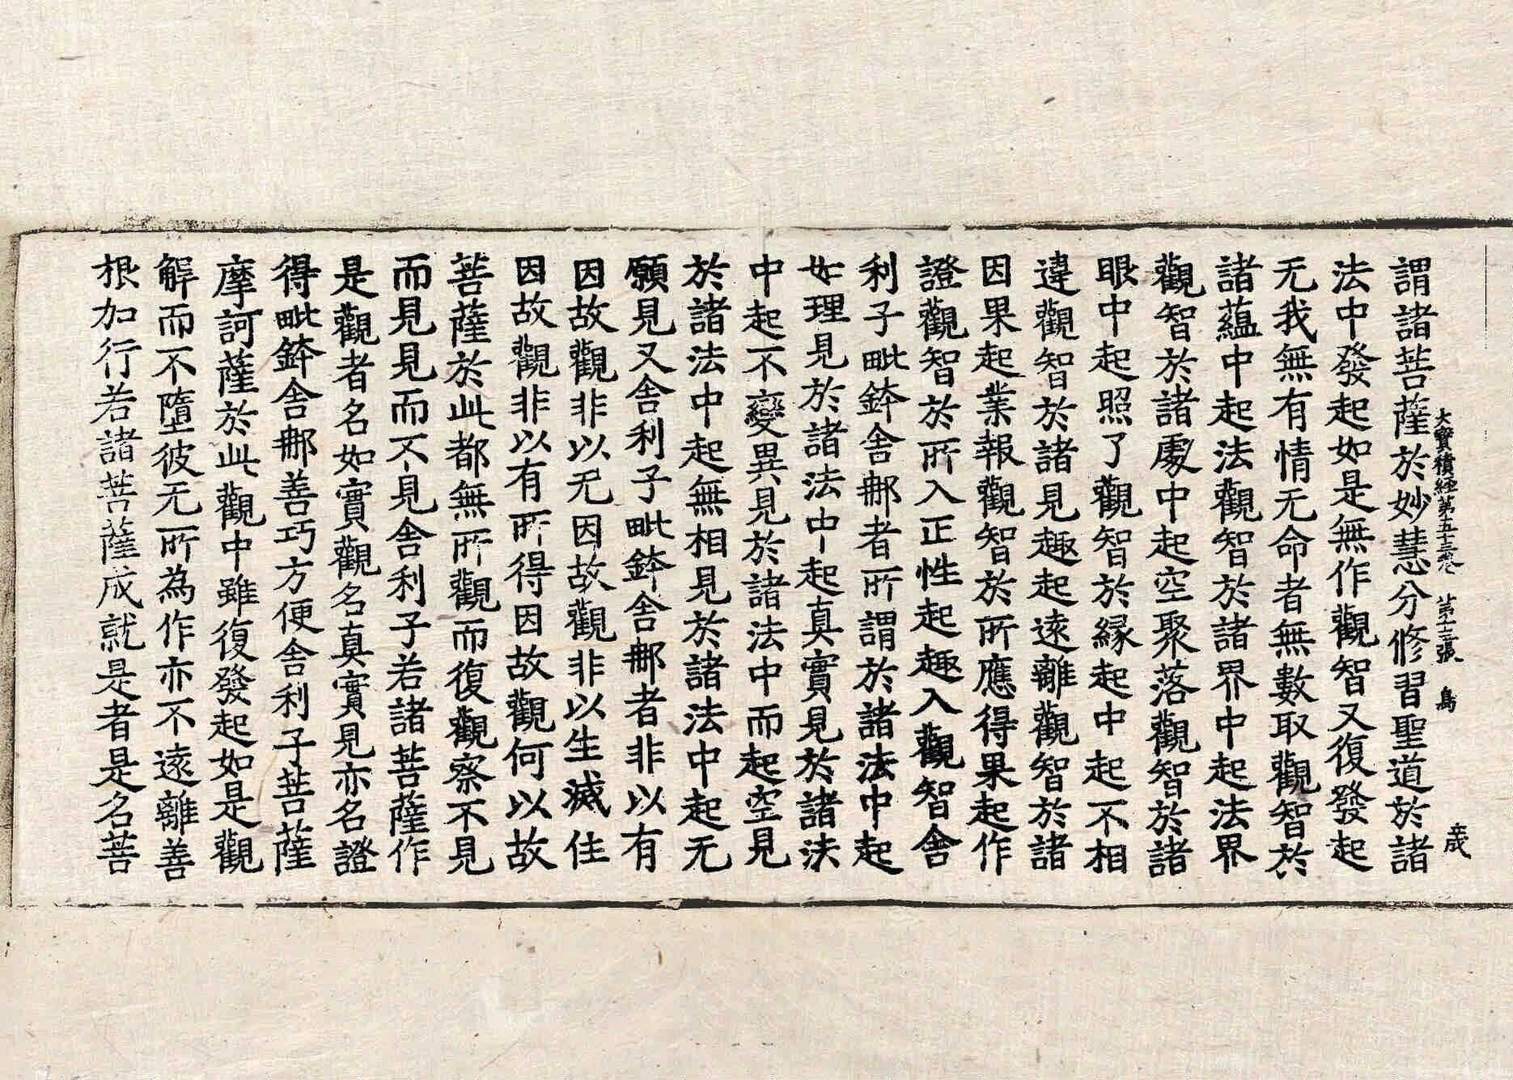 大寶積經第五十三卷 第十三張 鳥
謂諸菩薩於妙慧分修習聖道於諸
法中發起如是無作觀智又復發起
无我無有情无命者無數取觀智於
諸蘊中起法觀智於諸界中起法界
觀智於諸處中起空聚落觀智於諸
眼中起照了觀智於緣起中起不相
違觀智於諸見趣起遠離觀智於諸
因果起業報觀智於所應得果起作
證觀智於所入正性起趣入觀智舍
利子毗鉢舍那者所謂於諸法中起
如理見於諸法中起真實見於諸法
中起不變異見於諸法中而起空見
於諸法中起無相見於諸法中起无
願見又舍利子毗鉢舍那者非以有
因故觀非以无因故觀非以生滅住
因故觀非以有所得因故觀何以故
菩薩於此都無所觀而復觀察不見
而見見而不見舍利子若諸菩薩作
是觀者名如實觀名真實見亦名證
得毗鉢舍那善巧方便舍利子菩薩
摩訶薩於此觀中雖復發起如是觀
解而不墮彼无所為作亦不遠離善
根加行若諸菩薩成就是者是名菩